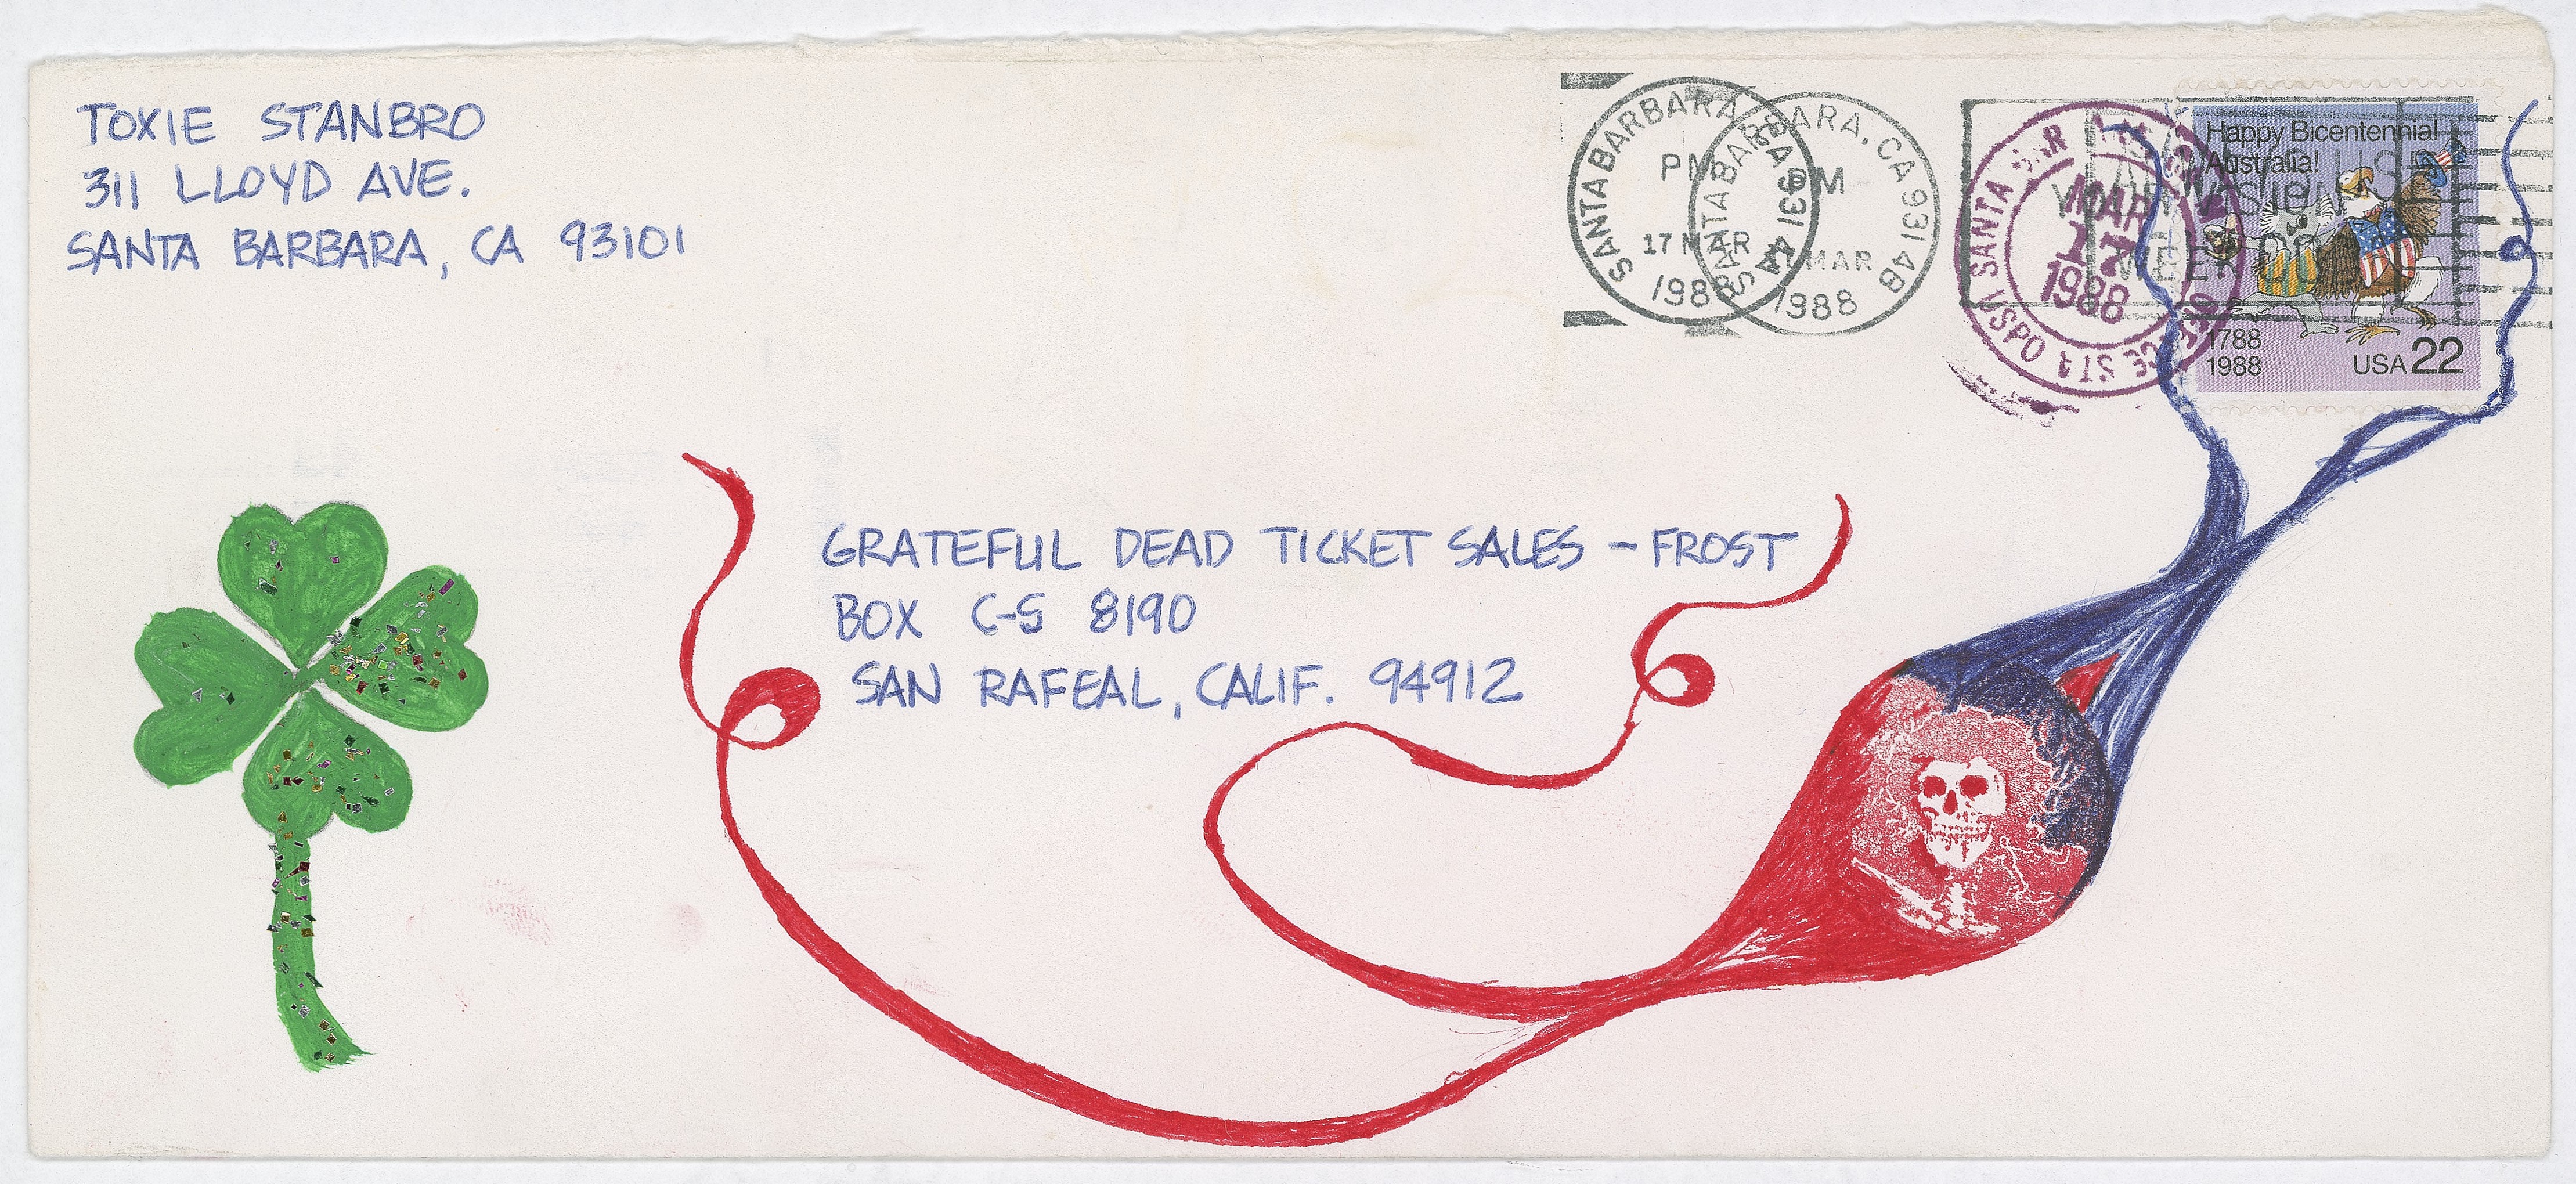 TOXIE STANBRO
311 LLOYD AVE.
SANTA BARBARA, CA 93101
SANTA BARBARA, CA 931
PM
17 MAR
1988
SANTA BARBARA, CA 9314B
PM
MAR
1988
SANTA BAR
USPO
MAR
17
1988
Happy Bicentennial
Australia!
1788
1988
USA 22
GRATEFUL DEAD TICKET SALES - FROST
BOX C-S 8190
SAN RAFEAL, CALIF. 94912